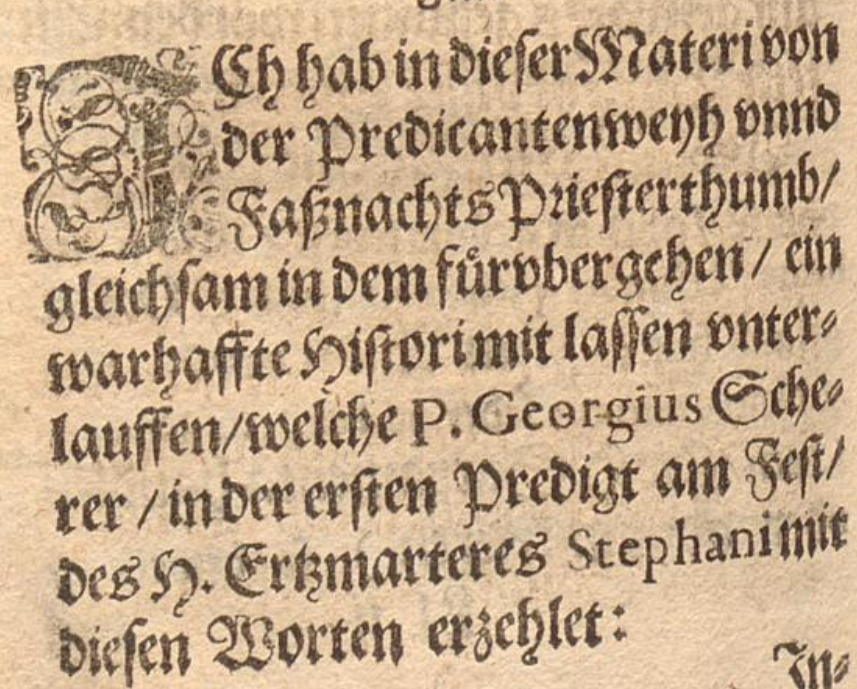 ICh hab in dieser Materi von
der Predicantenweyh vnnd
Faßnachts Priesterthumb/
gleichsam in dem fürvbergehen/ ein
warhaffte Histori mit lassen vnter-
lauffen/welche P. Georgius Sche-
rer / in der ersten Predigt am Fest/
des H. Ertzmarteres Stephani mit
diesen Worten erzehlet:
In-